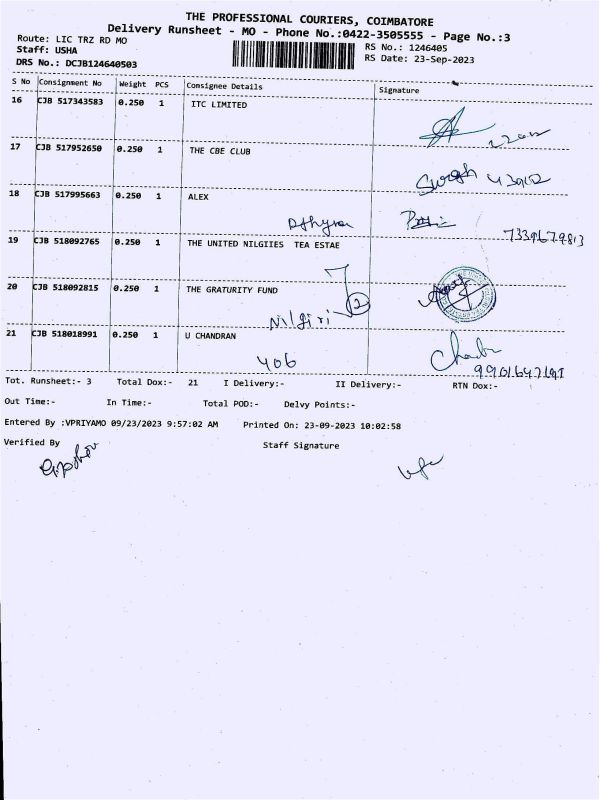 THE PROFESSIONAL COURIERS, COIMBATORE
Delivery Runsheet - MO - Phone No.:0422-3505555 - Page No.:3
Route: LIC TRZ RD MO
RS No.: 1246405
Staff: USHA
RS Date: 23-Sep-2023
DRS No.: DCJB124640503
S No Consignment No Weight PCS Consignee Details Signature
16 CJB 517343583 0.250 1 ITC LIMITED
17 CJB 517952650 0.250 1 THE CBE CLUB
18 CJB 517995663 0.250 1 ALEX
7339679813
19 CJB 518092765 0.250 1 THE UNITED NILGIIES TEA ESTAE
20 CJB 518092815 0.250 1 THE GRATURITY FUND
2
Nilgiri
21 CJB 518018991 0.250 1 U CHANDRAN
406
Tot. Runsheet:- 3 Total Dox:- 21 I Delivery:- II Delivery:- RTN Dox:-
Out Time:- In Time:- Total POD:- Delvy Points:-
Entered By :VPRIYAMO 09/23/2023 9:57:02 AM Printed On: 23-09-2023 10:02:58
Verified By Staff Signature